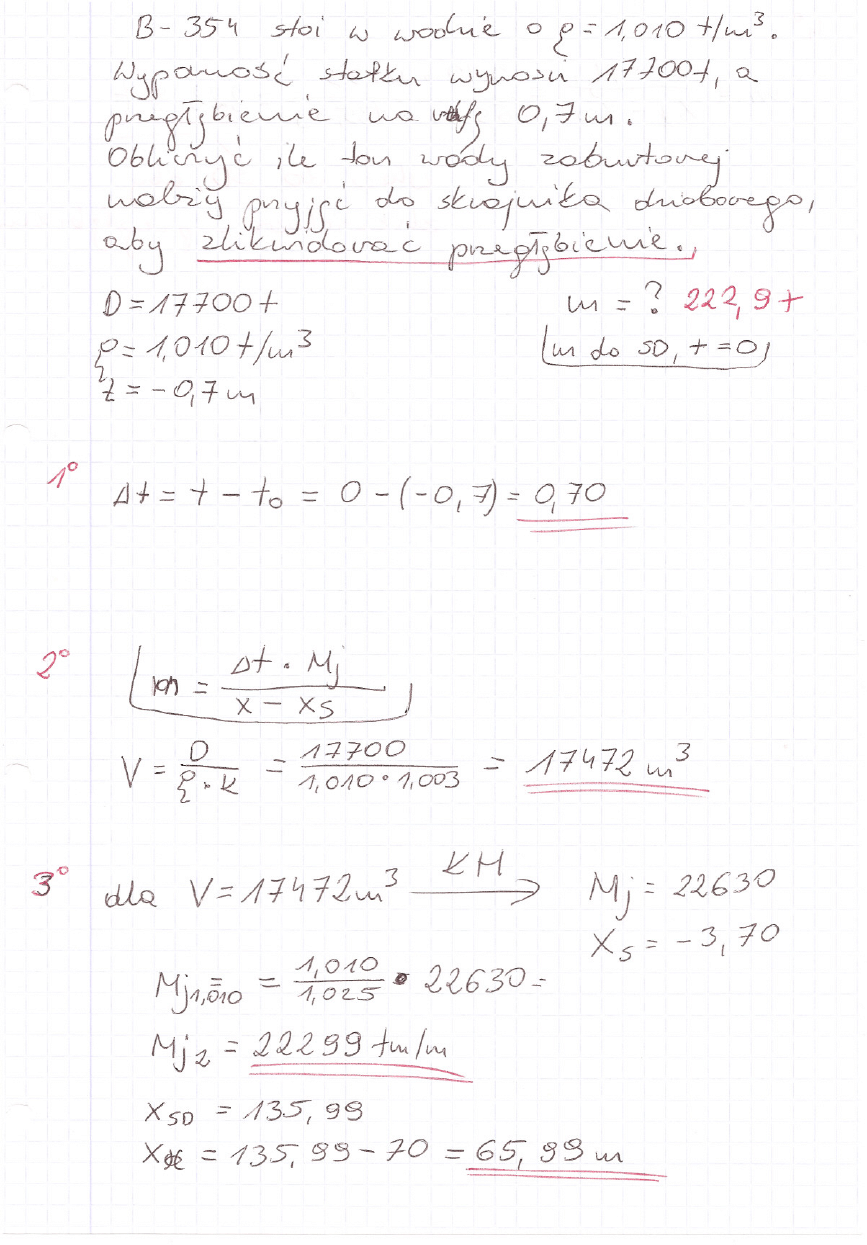 B-354 stoi w wodzie o ρ = 1,010 t/m³.
Wyporność statku wynosi 17700t, a
przegłębienie na rufę 0,7m.
Obliczyć ile ton wody zaburtowej
należy przyjąć do skrajnika dziobowego,
aby zlikwidować przegłębienie.
D = 17700 t
m = ? 222,9 t
ρ = 1,010 t/m³
(m do SD, t = 0)
t = -0,7 m
1°
Δt = t - t₀ = 0 - (-0,7) = 0,70
2°
m = Δt · Mj / x - xs
V = D / ρ · k = 17700 / 1,010 · 1,003 = 17472 m³
3°
dla V = 17472 m³ → KM Mj = 22630
Xs = -3,70
Mj1,010 = 1,010 / 1,025 · 22630 =
Mj2 = 22299 tm/m
XSD = 135,99
X = 135,99 - 70 = 65,99 m